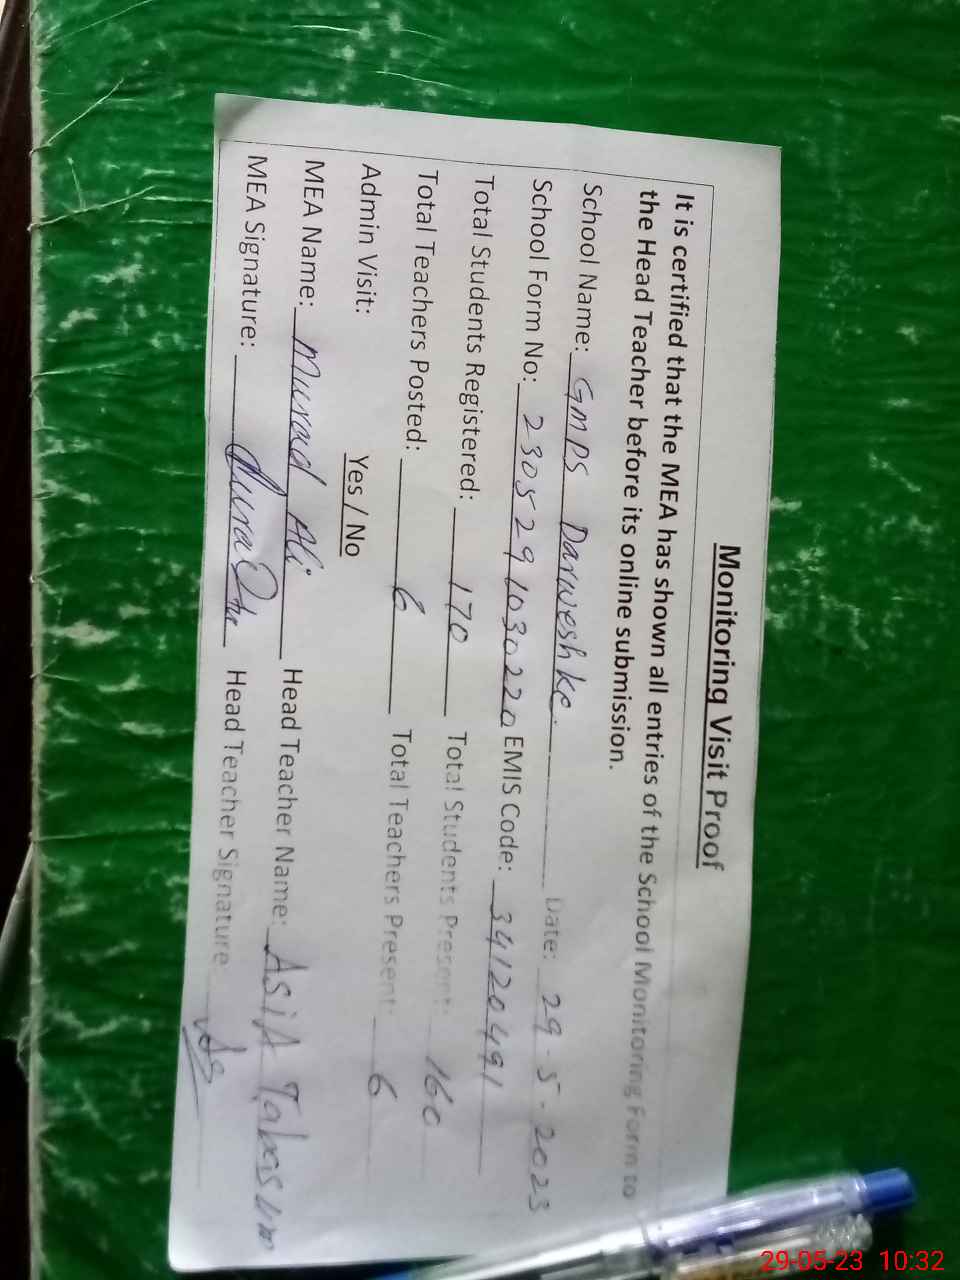 Monitoring Visit Proof
It is certified that the MEA has shown all entries of the School Monitoring Form to
the Head Teacher before its online submission.
School Name: GMPS Darweshke. Date: 29-5-2023
School Form No: 2305291030220 EMIS Code: 34120491
Total Students Registered: 170 Total Students Present: 160
Total Teachers Posted: 6 Total Teachers Present: 6
Admin Visit: Yes / No
MEA Name: Murad Ali Head Teacher Name: ASiA Tabasum
MEA Signature: Head Teacher Signature
29-05-23 10:32